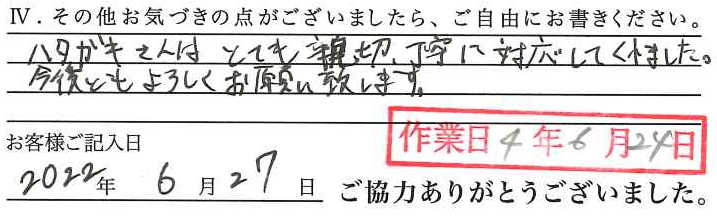 Ⅳ．その他お気づきの点がございましたら、ご自由にお書きください。
ハタガキさんは とても 親切、丁寧に 対応してくれました。
今後ともよろしくお願い致します。
お客様ご記入日
作業日 4 年 6 月 24 日
2022 年 6 月 27 日 ご協力ありがとうございました。